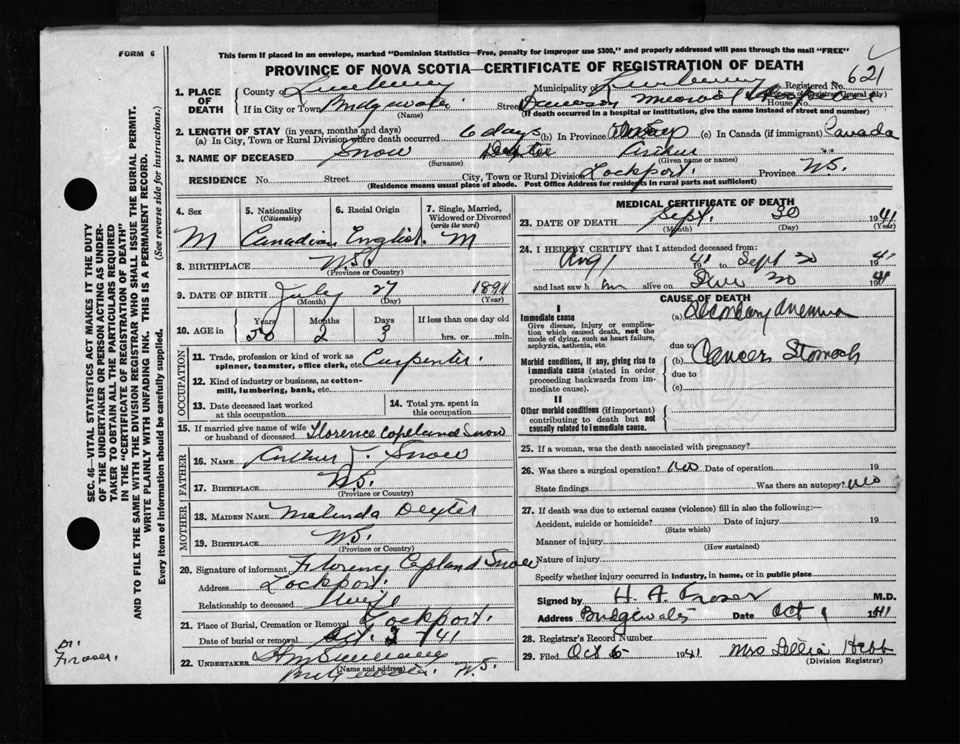 FORM 6
This form if placed in an envelope, marked "Dominion Statistics—Free, penalty for improper use $300," and properly addressed will pass through the mail "FREE"
PROVINCE OF NOVA SCOTIA—CERTIFICATE OF REGISTRATION OF DEATH
621
1. PLACE OF DEATH
County of Lunenburg Municipality of Lunenburg Registered No.
(For use of Registrar General only)
If in City or Town Bridgewater Street Dawson Memorial Hospital House No.
(Name) (If death occurred in a hospital or institution, give the name instead of street and number)
2. LENGTH OF STAY (in years, months and days)
(a) In City, Town or Rural Division where death occurred 6 days (b) In Province (c) In Canada (if immigrant) Canada
3. NAME OF DECEASED Snow Dexter Arthur
(Surname) (Given name or names)
RESIDENCE No. Street City, Town or Rural Division Lockport. Province N.S.
(Residence means usual place of abode. Post Office Address for residents in rural parts not sufficient)
4. Sex M
5. Nationality (Citizenship) Canadian
6. Racial Origin English.
7. Single, Married, Widowed or Divorced (write the word) M
8. BIRTHPLACE N.S.
(Province or Country)
9. DATE OF BIRTH July 27 1891
(Month) (Day) (Year)
10. AGE in Years 50 Months 2 Days 3 If less than one day old
hrs. or min.
OCCUPATION
11. Trade, profession or kind of work as spinner, teamster, office clerk, etc. Carpenter.
12. Kind of industry or business, as cotton-mill, lumbering, bank, etc.
13. Date deceased last worked at this occupation
14. Total yrs. spent in this occupation
15. If married give name of wife or husband of deceased Florence Copeland Snow
FATHER
16. NAME Arthur J. Snow
17. BIRTHPLACE N.S.
(Province or Country)
MOTHER
18. MAIDEN NAME Malinda Dexter
19. BIRTHPLACE N.S.
(Province or Country)
20. Signature of informant Florence Copland Snow
Address Lockport.
Relationship to deceased Wife
21. Place of Burial, Cremation or Removal Lockport.
Date of burial or removal Oct. 2 - 1941
22. UNDERTAKER
(Name and address)
Bridgewater. N.S.
MEDICAL CERTIFICATE OF DEATH
23. DATE OF DEATH Sept. 30 1941
(Month) (Day) (Year)
24. I HEREBY CERTIFY that I attended deceased from:
Aug 1 41 to Sept 30 1941
and last saw him alive on 30 1941
CAUSE OF DEATH
I
Immediate cause
Give disease, injury or complication which caused death, not the mode of dying, such as heart failure, asphyxia, asthenia, etc.
(a) Secondary anemia
due to
Morbid conditions, if any, giving rise to immediate cause (stated in order proceeding backwards from immediate cause).
(b) Cancer Stomach
due to
(c)
II
Other morbid conditions (if important) contributing to death but not causally related to immediate cause.
25. If a woman, was the death associated with pregnancy?
26. Was there a surgical operation? No Date of operation 19
State findings Was there an autopsy? No
27. If death was due to external causes (violence) fill in also the following:—
Accident, suicide or homicide? Date of injury 19
(State which)
Manner of injury
(How sustained)
Nature of injury
Specify whether injury occurred in industry, in home, or in public place
Signed by H. A. Fraser M.D.
Address Bridgewater Date Oct 1 1941
28. Registrar's Record Number
29. Filed Oct 6 1941 Mrs Hebb
(Division Registrar)
SEC. 46—VITAL STATISTICS ACT MAKES IT THE DUTY
OF THE UNDERTAKER OR PERSON ACTING AS UNDER-
TAKER TO OBTAIN ALL THE PARTICULARS REQUIRED
IN THE "CERTIFICATE OF REGISTRATION OF DEATH"
AND TO FILE THE SAME WITH THE DIVISION REGISTRAR WHO SHALL ISSUE THE BURIAL PERMIT.
WRITE PLAINLY WITH UNFADING INK. THIS IS A PERMANENT RECORD.
Every item of information should be carefully supplied. (See reverse side for instructions.)
Dr.
Fraser.